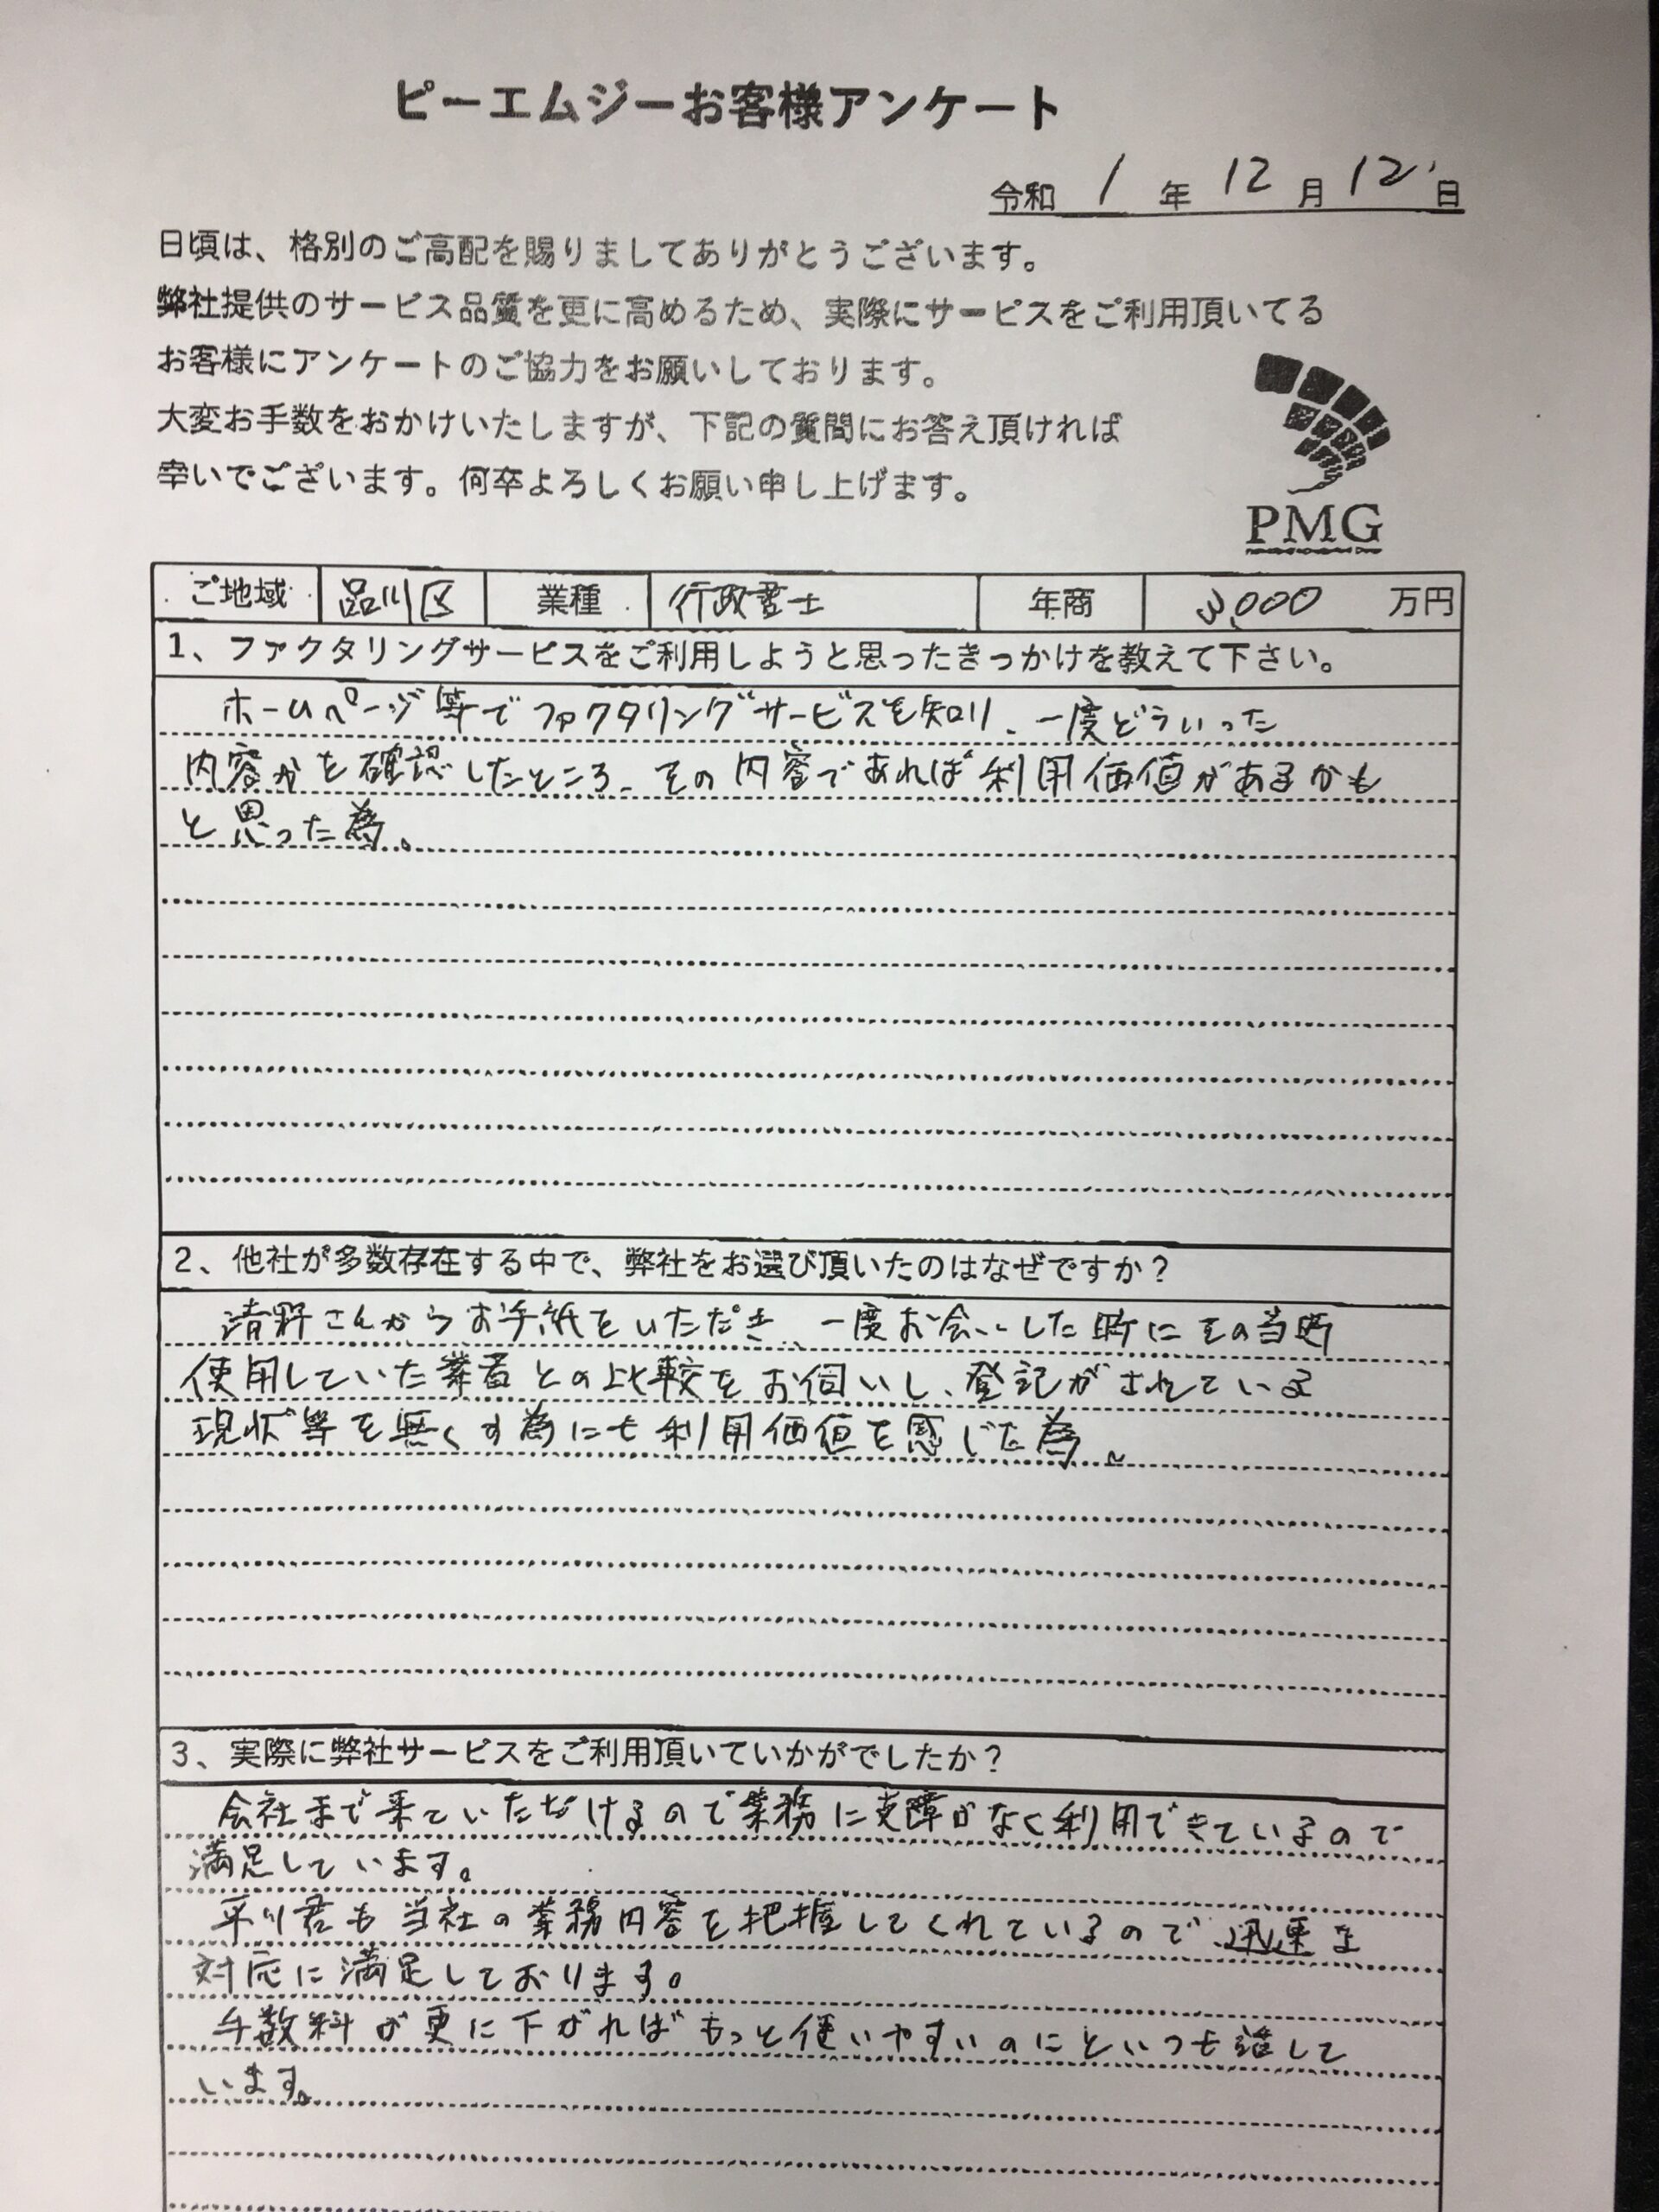 ピーエムジーお客様アンケート
令和 1 年 12 月 12 日
日頃は、格別のご高配を賜りましてありがとうございます。
弊社提供のサービス品質を更に高めるため、実際にサービスをご利用頂いてる
お客様にアンケートのご協力をお願いしております。
大変お手数をおかけいたしますが、下記の質問にお答え頂ければ
幸いでございます。何卒よろしくお願い申し上げます。
PMG
ご地域 品川区 業種 行政書士 年商 3,000 万円
1、ファクタリングサービスをご利用しようと思ったきっかけを教えて下さい。
ホームページ等でファクタリングサービスを知り、一度どういった
内容かを確認したところ、その内容であれば利用価値があるかも
と思った為。
2、他社が多数存在する中で、弊社をお選び頂いたのはなぜですか?
清野さんからお手紙をいただき、一度お会いした時にその当時
使用していた業者との比較をお伺いし、登記がされている
現状等を無くす為にも利用価値を感じた為。
3、実際に弊社サービスをご利用頂いていかがでしたか?
会社まで来ていただけるので業務に支障がなく利用できているので
満足しています。
平川君も当社の業務内容を把握してくれているので迅速な
対応に満足しております。
手数料が更に下がればもっと使いやすいのにといつも話して
います。